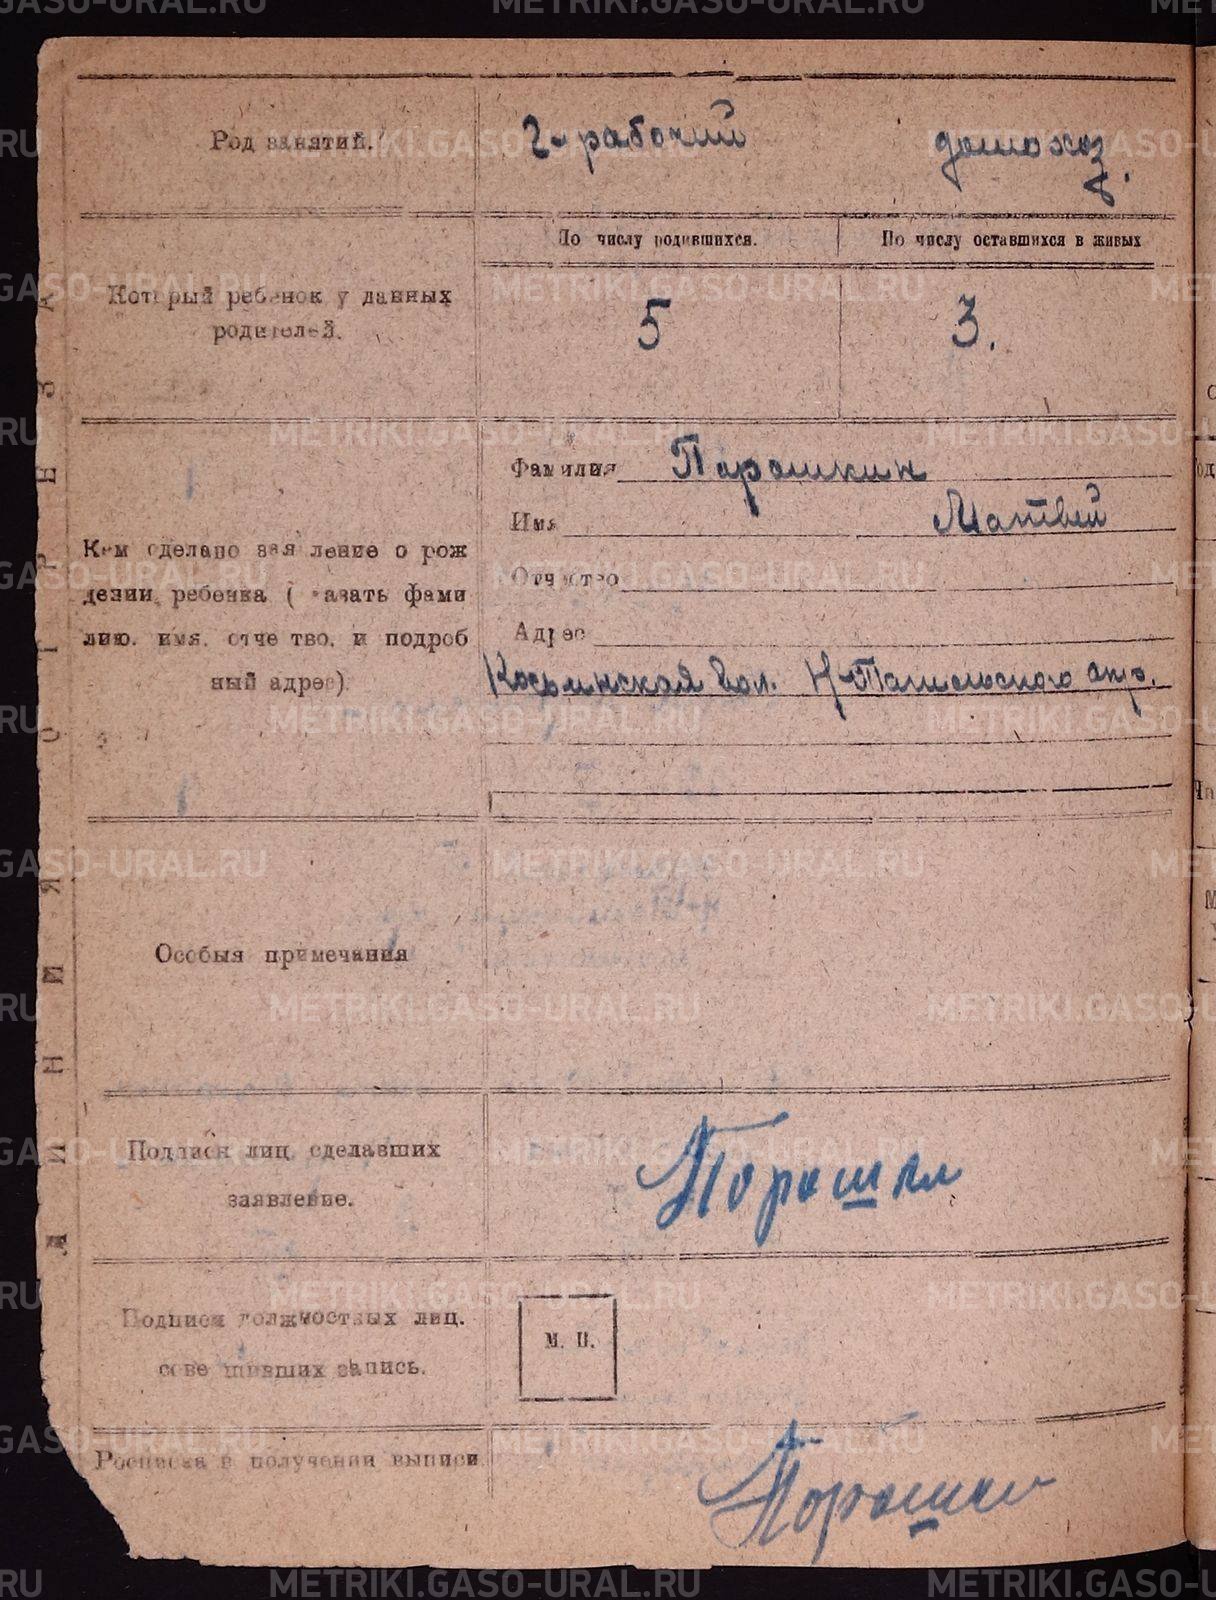 Род занятий.
г-рабочий
домохоз.
По числу родившихся.
По числу оставшихся в живых
Который ребенок у данных
родителей.
5
3.
Кем сделано заявление о рож
дении ребенка (казать фами
лию. имя. отчество. и подроб
ный адрес).
Фамилия Порошкин
Имя Матвей
Отчество
Адрес
вол. Н-Павельского окр.
Особыя примечания
Подписи лиц сделавших
заявление.
Подписи должностных лиц.
сове шивших запись.
М. П.
Росписка в получении выписи
ЛИНИЯ ОТРЕЗА
METRIKI.GASO-URAL.RU